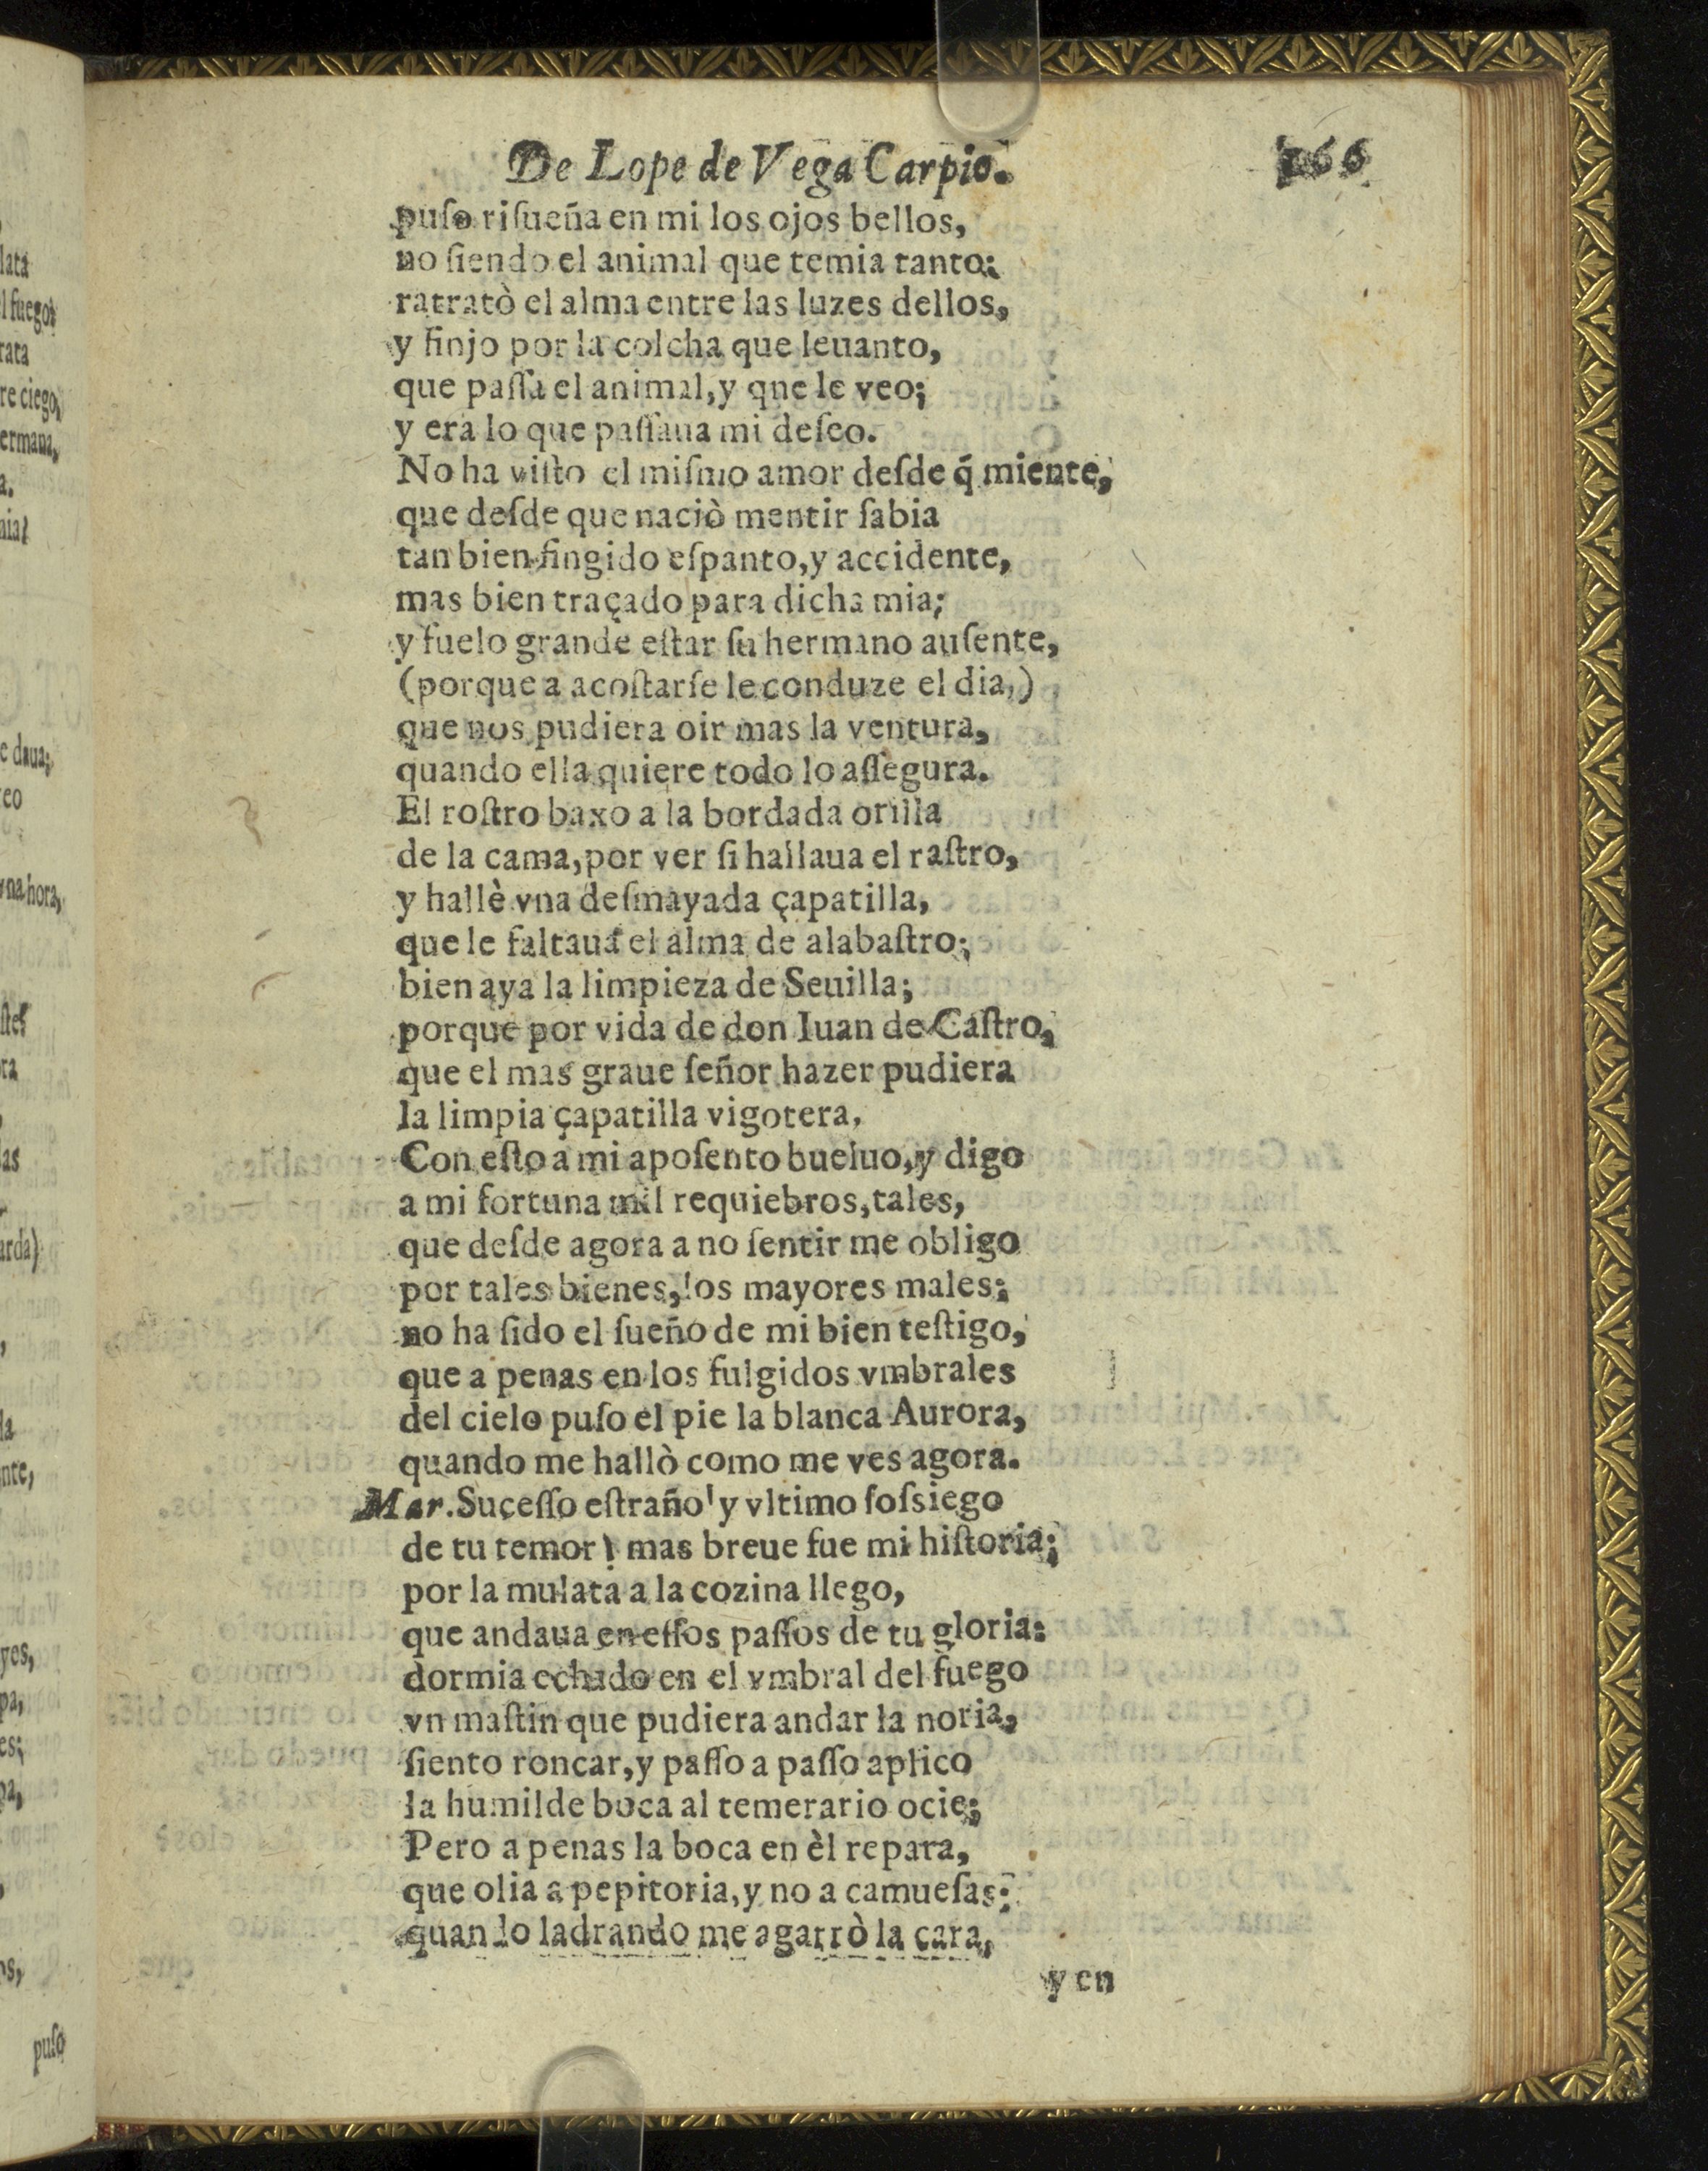 De Lope de Vega Carpio. 166
puſo riſueña en mi los ojos bellos,
no ſiendo el animal que temia tanto;
ratratò el alma entre las luzes dellos,
y finjo por la colcha que leuanto,
que paſſa el animal, y qne le veo;
y era lo que paſſaua mi deſeo.
No ha viſto el miſmo amor deſde q̃ miente,
que deſde que naciò mentir ſabia
tan bien fingido eſpanto, y accidente,
mas bien traçado para dicha mia;
y fuelo grande eſtar ſu hermano auſente,
(porque a acoſtarſe le conduze el dia,)
que nos pudiera oir mas la ventura,
quando ella quiere todo lo aſſegura.
El roſtro baxo a la bordada orilla
de la cama, por ver ſi hallaua el raſtro,
y hallè vna deſmayada çapatilla,
que le faltaua el alma de alabaſtro;
bien aya la limpieza de Seuilla;
porque por vida de don Iuan de Caſtro,
que el mas graue ſeñor hazer pudiera
la limpia çapatilla vigotera.
Con eſto a mi apoſento bueluo, y digo
a mi fortuna mil requiebros, tales,
que deſde agora a no ſentir me obligo
por tales bienes, los mayores males;
no ha ſido el ſueño de mi bien teſtigo,
que a penas en los fulgidos vmbrales
del cielo puſo el pie la blanca Aurora,
quando me hallò como me ves agora.
Mar. Suceſſo eſtraño! y vltimo ſoſsiego
de tu temor! mas breue fue mi hiſtoria;
por la mulata a la cozina llego,
que andaua en eſſos paſſos de tu gloria:
dormia echado en el vmbral del fuego
vn maſtin que pudiera andar la noria,
ſiento roncar, y paſſo a paſſo aplico
la humilde boca al temerario ocie;
Pero a penas la boca en èl repara,
que olia a pepitoria, y no a camueſas;
quando ladrando me agarrò la cara,
y en